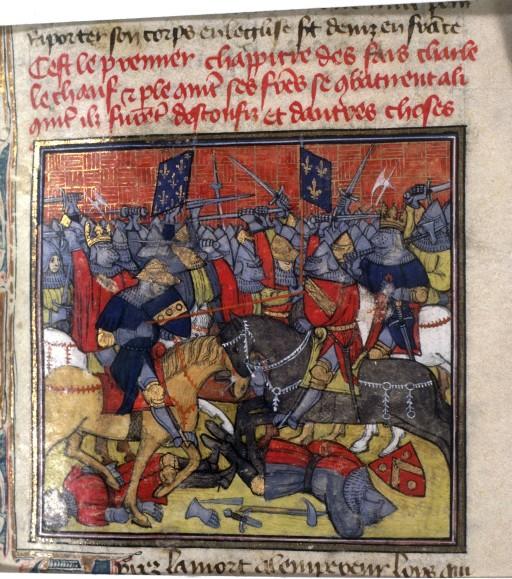 Raporter son corps en leglise st denis en france
Cest le premier chappitre des fais charle
le chauf et ple quit ses freres se obatirent a li
quit ilz furent desconfiz et dautres choses
pres la mort a lempereur loys qui